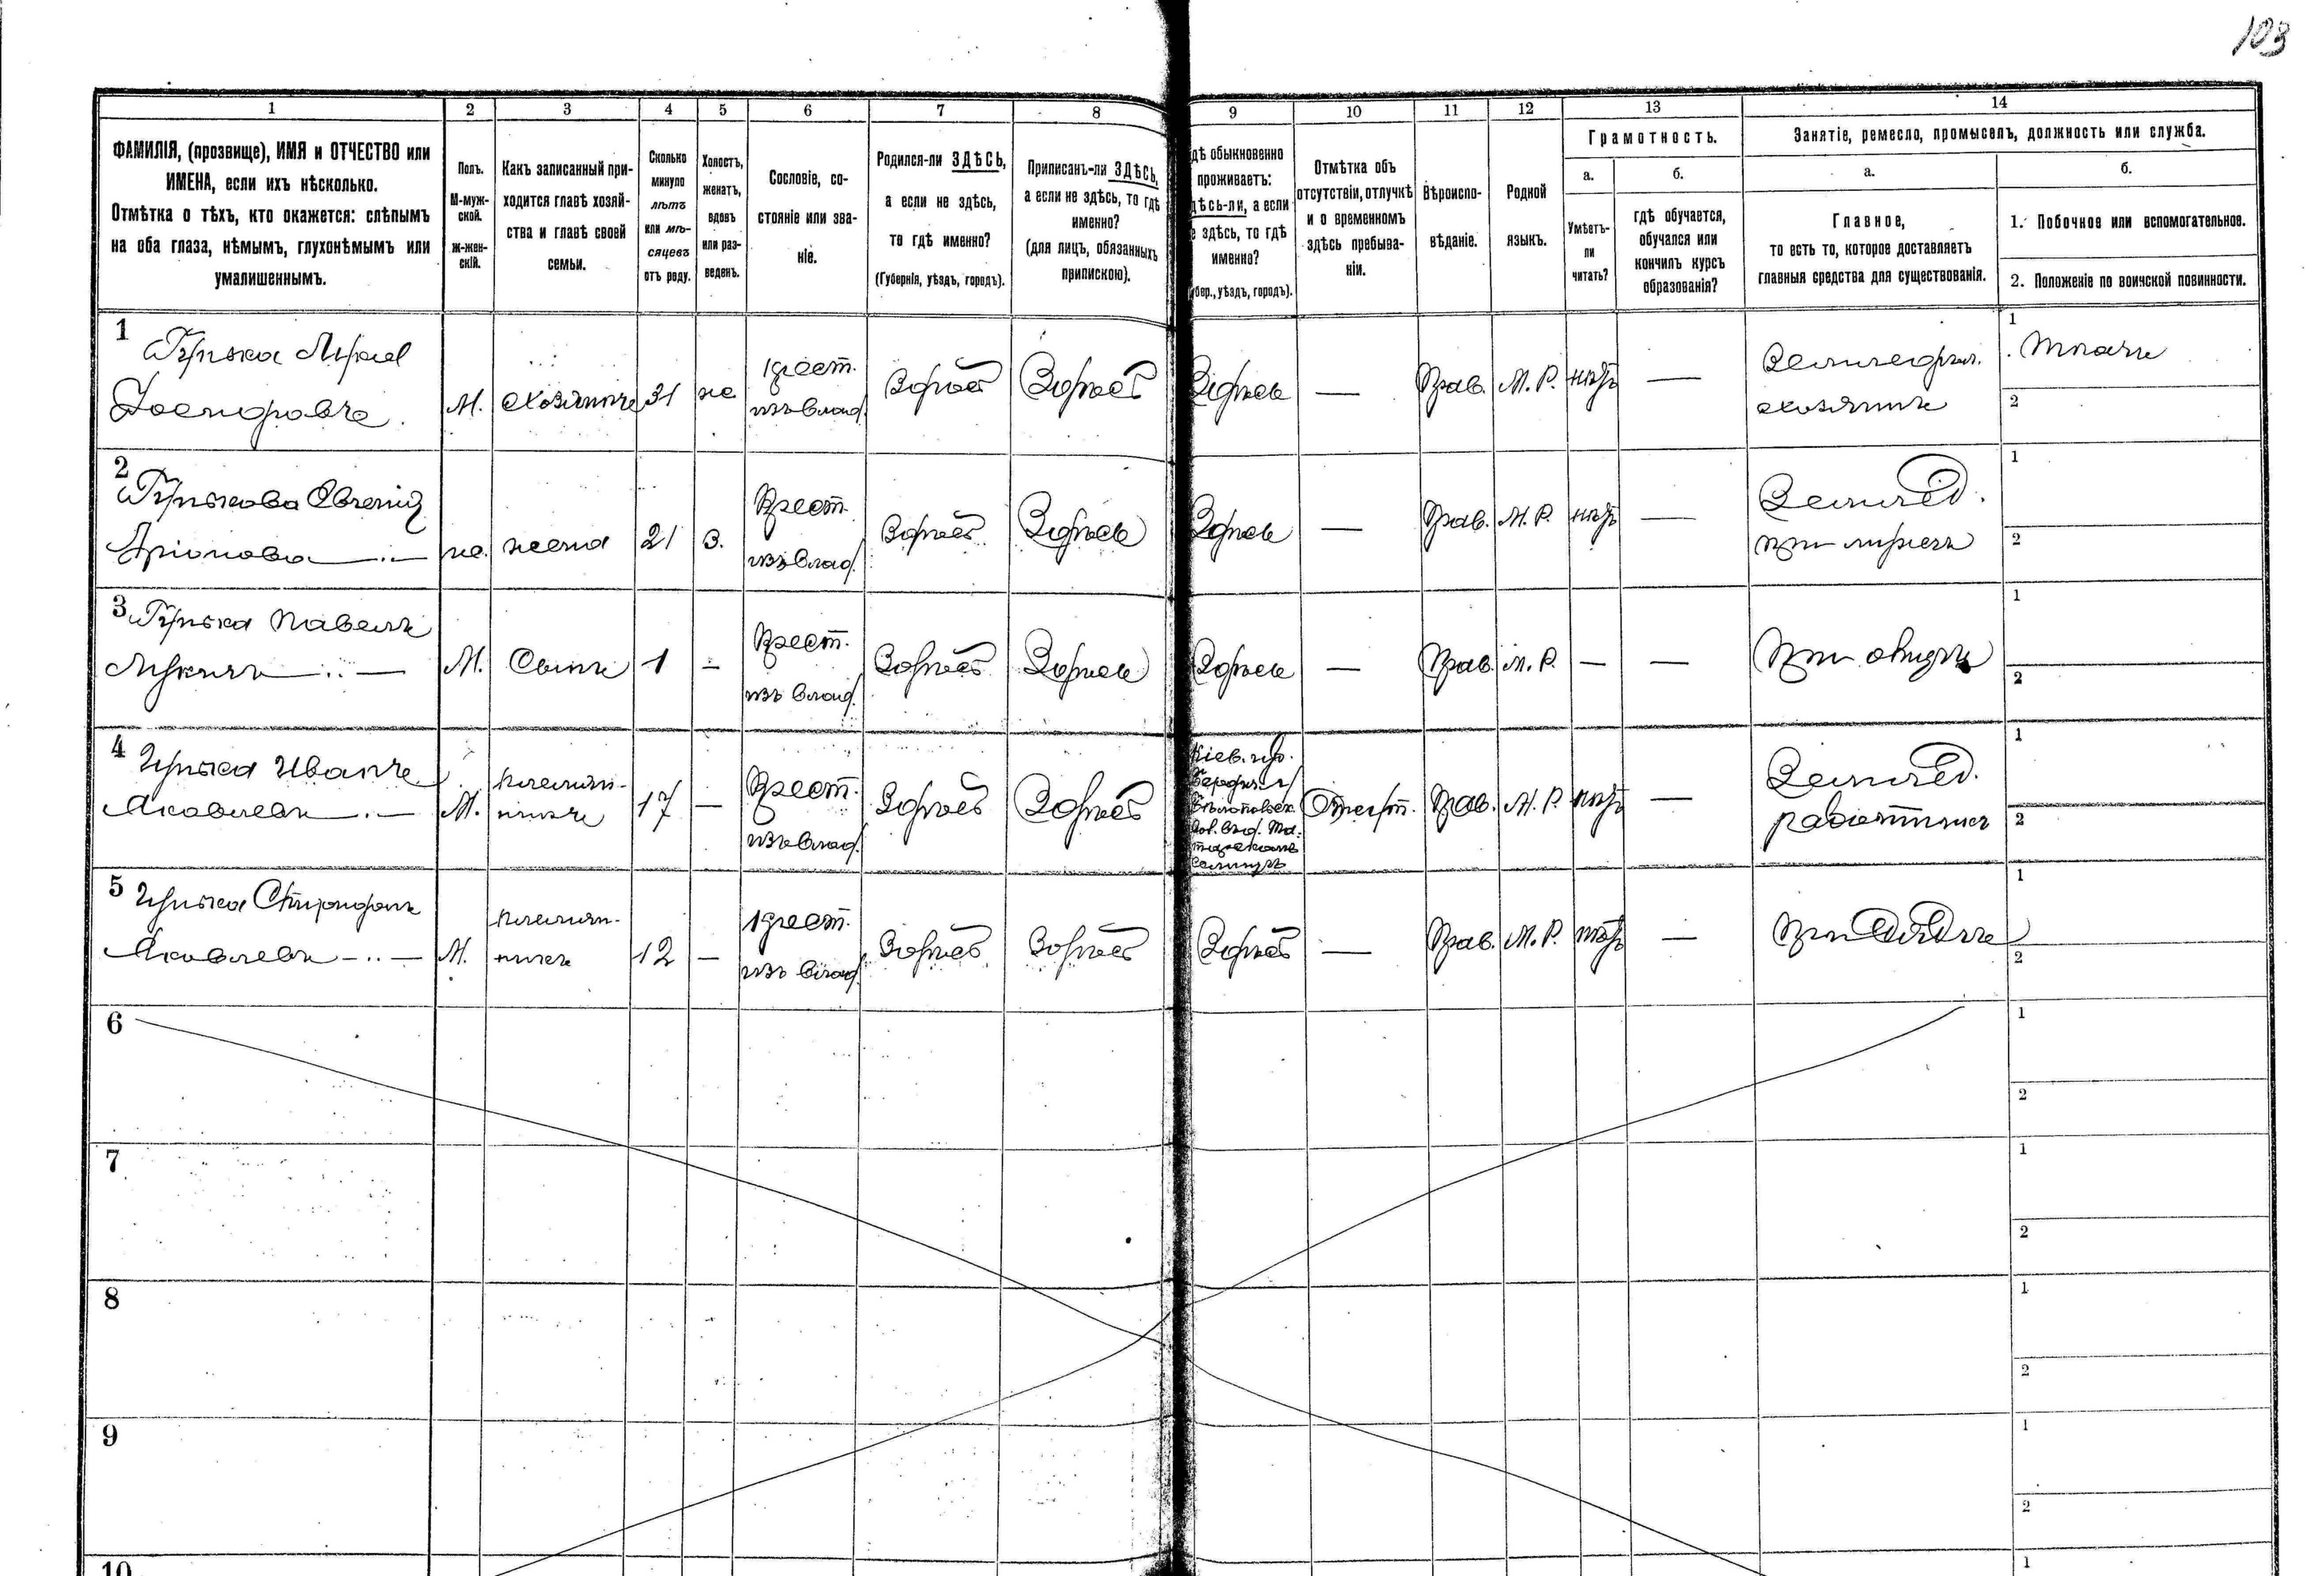 103
1 2 3 4 5 6 7 8 9 10 11 12 13 14
ФАМИЛІЯ, (прозвище), ИМЯ и ОТЧЕСТВО или
ИМЕНА, если ихъ нѣсколько.
Отмѣтка о тѣхъ, кто окажется: слѣпымъ
на оба глаза, нѣмымъ, глухонѣмымъ или
умалишеннымъ.
Полъ.
М-муж-
ской.
ж-жен-
скій.
Какъ записанный при-
ходится главѣ хозяй-
ства и главѣ своей
семьи.
Сколько
минуло
лѣтъ
или мѣ-
сяцевъ
отъ роду.
Холостъ,
женатъ,
вдовъ
или раз-
веденъ.
Сословіе, со-
стояніе или зва-
ніе.
Родился-ли ЗДѢСЬ,
а если не здѣсь,
то гдѣ именно?
(Губернія, уѣздъ, городъ).
Приписанъ-ли ЗДѢСЬ,
а если не здѣсь, то гдѣ
именно?
(для лицъ, обязанныхъ
припискою).
дѣ обыкновенно
проживаетъ:
дѣсь-ли, а если
е здѣсь, то гдѣ
именно?
бер., уѣздъ, городъ).
Отмѣтка объ
отсутствіи, отлучкѣ
и о временномъ
здѣсь пребыва-
ніи.
Вѣроиспо-
вѣданіе.
Родной
языкъ.
Грамотность.
а.
Умѣетъ-
ли
читать?
б.
гдѣ обучается,
обучался или
кончилъ курсъ
образованія?
Занятіе, ремесло, промыселъ, должность или служба.
а.
Главное,
то есть то, которое доставляетъ
главныя средства для существованія.
б.
1. Побочное или вспомогательное.
2. Положеніе по воинской повинности.
1
М. хозяинъ 31 ж. крест.
изъ влад. Здѣсь Здѣсь Здѣсь — Прав. М. Р. нѣтъ —
хозяинъ
1 Ткачъ
2
2
ж. жена 21 з. Крест.
изъ влад. Здѣсь Здѣсь Здѣсь — Прав. М. Р. нѣтъ —
Землед.
при мужѣ
1
2
3 Павелъ
Лукинъ — М. Сынъ 1 — Крест.
изъ влад. Здѣсь Здѣсь Здѣсь — Прав. М. Р. — —
При отцѣ
1
2
4 Иванъ
Яковлевъ — М. племян-
никъ 17 — Крест.
изъ влад. Здѣсь Здѣсь
Кіев. губ.
Прав. М. Р. нѣтъ —
Землед.
работникъ
1
2
5 Спиридонъ
Яковлевъ — М. племян-
никъ 12 — крест.
изъ влад. Здѣсь Здѣсь Здѣсь — Прав. М. Р. нѣтъ —
При дядѣ
1
2
6
1
2
7
1
2
8
1
2
9
1
2
10
1